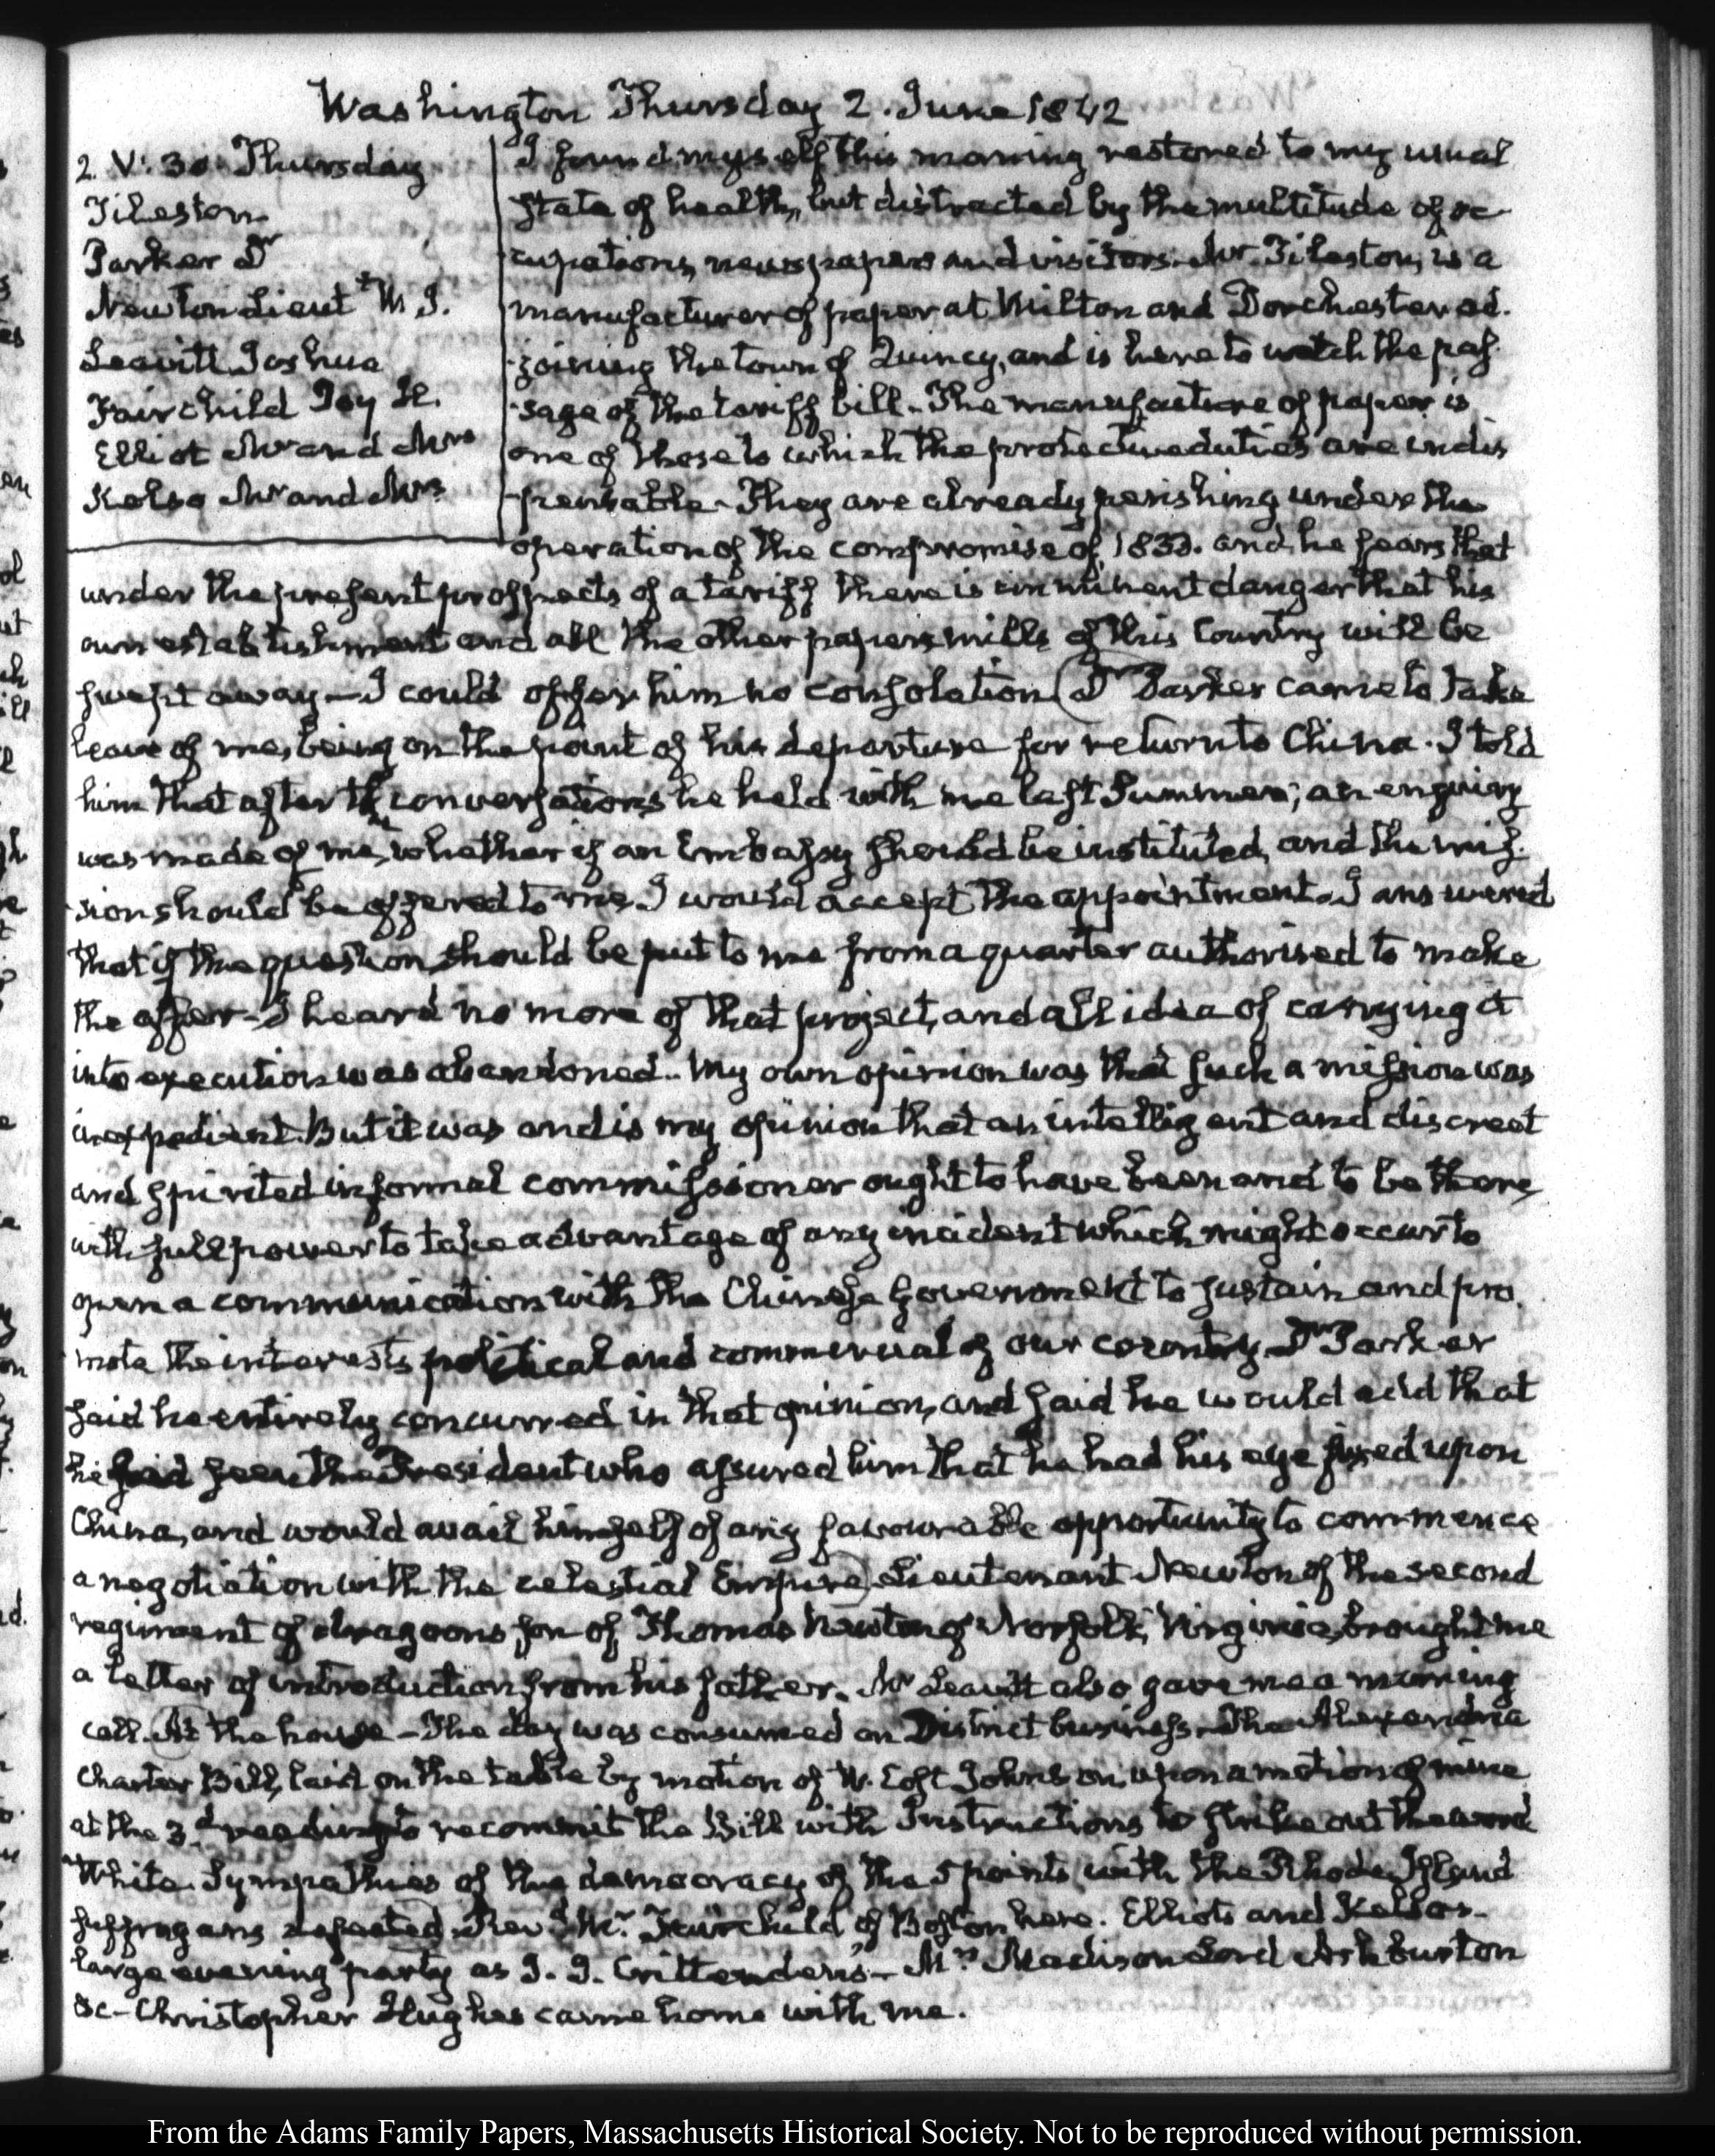 Washington Thursday 2. June 1842
2. V: 30. Thursday
Tileston
Parker Dr
Newton Lieut.t W. I.
Leavitt Joshua
Fairchild Joy H.
Elliot Mr and Mrs
Kelso Mr and Mrs
I found myself this morning restored to my usual
state of health, but distracted by the multitude of oc-
cupations, newspapers and visitors. Mr Tileston, is a
manufacturer of paper at Milton and Dorchester ad-
-joining the town of Quincy, and is here to watch the pas-
-sage of the tariff bill. The manufacture of paper is
one of those to which the protective duties are indis
-pensable. They are already perishing under the
operation of the compromise of 1833. and he fears that
under the present prospects of a tariff there is imminent danger that his
own establishment and all the other paper mills of this Country will be
swept away—I could offer him no consolation (Dr Parker came to take
leave of me, being on the point of his departure for return to China. I told
him that after the conversations he held with me last Summer; an enquiry
was made of me, whether if an Embassy should be instituted, and the mis-
-sion should be offered to me, I would accept the appointment. I answered
that if the question should be put to me from a quarter authorised to make
the offer—I heard no more of that project, and all idea of carrying it
into execution was abandoned. My own opinion was that such a mission was
inexpedient. But it was and is my opinion that an intelligent and discreet
and spirited informal commissioner ought to have been and to be there,
with full power to take advantage of any incident which might occur to
open a communication with the Chinese Government to sustain and pro-
mote the interests political and commercial of our country. Dr Parker
said he entirely concurred in that opinion, and said he would add that
he had seen the President who assured him that he had his eye fixed upon
China, and would avail himself of any favourable opportunity to commence
a negotiation with the celestial Empire) Lieutenant Newton of the second
regiment of dragoons, son of Thomas Newton of Norfolk, Virginia, brought me
a letter of introduction from his father. Mr Leavitt also gave me a morning
call. At the house—The day was consumed on District business. The Alexandria
Charter Bill, laid on the table by motion of W. Cost Johnson, upon a motion of mine
at the 3.d reading to recommit the Bill with Instructions to strike out the word
White. Sympathies of the democracy of the 5 points with the Rhode Island
suffragans defeated. Rev.d Mr. Fairchild of Boston here. Elliots and Kelsos—
large evening party at J. J. Crittenden's—Mrs Madison Lord Ashburton
&c—Christopher Hughes came home with me.
From the Adams Family Papers, Massachusetts Historical Society. Not to be reproduced without permission.